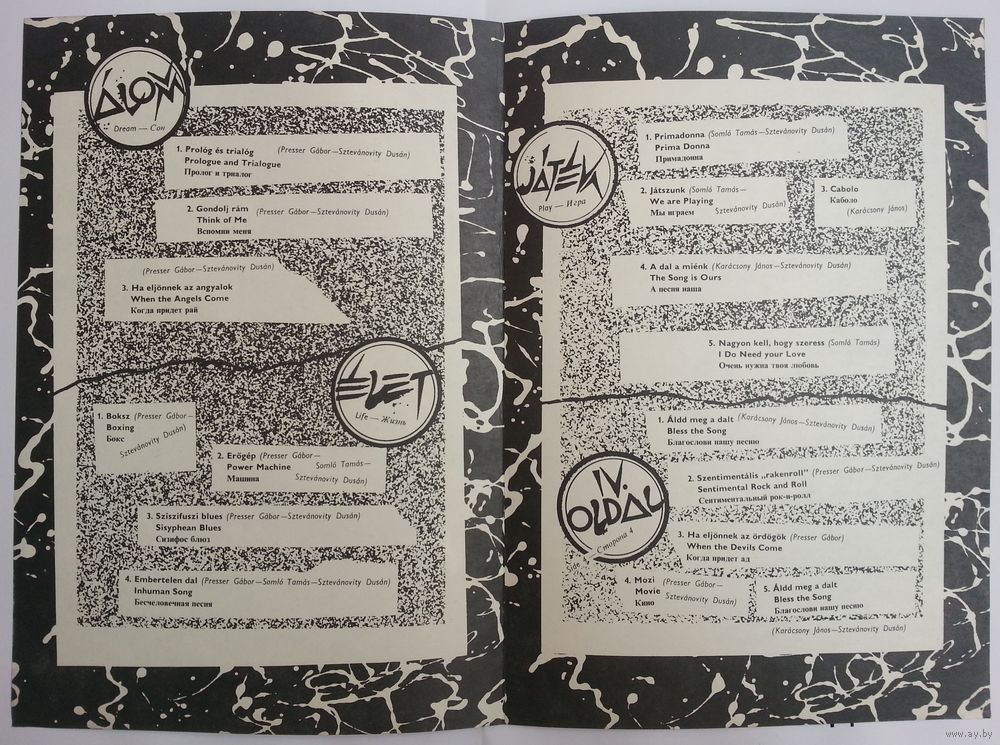 ÁLOM
Dream — Сон
1. Prológ és trialóg (Presser Gábor—Sztevánovity Dusán)
Prologue and Trialogue
Пролог и триалог
2. Gondolj rám (Presser Gábor—Sztevánovity Dusán)
Think of Me
Вспомни меня
(Presser Gábor—Sztevánovity Dusán)
3. Ha eljönnek az angyalok
When the Angels Come
Когда придет рай
ÉLET
Life — Жизнь
1. Boksz (Presser Gábor—
Boxing Sztevánovity Dusán)
Бокс
2. Erőgép (Presser Gábor—
Power Machine Somló Tamás—
Машина Sztevánovity Dusán)
3. Sziszifuszi blues (Presser Gábor—Sztevánovity Dusán)
Sisyphean Blues
Сизифос блюз
4. Embertelen dal (Presser Gábor—Somló Tamás—Sztevánovity Dusán)
Inhuman Song
Бесчеловечная песня
JÁTÉK
Play — Игра
1. Primadonna (Somló Tamás—Sztevánovity Dusán)
Prima Donna
Примадонна
2. Játszunk (Somló Tamás—
We are Playing Sztevánovity Dusán)
Мы играем
3. Cabolo
Каболо
(Karácsony János)
4. A dal a miénk (Karácsony János—Sztevánovity Dusán)
The Song is Ours
А песня наша
5. Nagyon kell, hogy szeress (Somló Tamás)
I Do Need your Love
Очень нужна твоя любовь
IV.
OLDAL
Сторона 4
1. Áldd meg a dalt (Karácsony János—Sztevánovity Dusán)
Bless the Song
Благослови нашу песню
2. Szentimentális „rakenroll” (Presser Gábor—Sztevánovity Dusán)
Sentimental Rock and Roll
Сентиментальный рок-н-ролл
3. Ha eljönnek az ördögök (Presser Gábor)
When the Devils Come
Когда придет ад
4. Mozi (Presser Gábor—
Movie Sztevánovity Dusán)
Кино
5. Áldd meg a dalt
Bless the Song
Благослови нашу песню
(Karácsony János—Sztevánovity Dusán)
www.ay.by